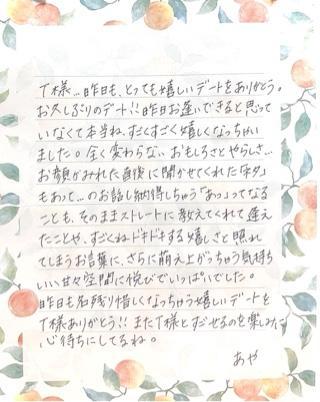 T様…昨日も、とっても嬉しいデートをありがとう。
お久しぶりのデート!!昨日お逢いできると思って
いなくて本当ね、すごくすごく嬉しくなっちゃい
ました。全く変わらないおもしろさとやらしさ…
お顔がみれた直後に聞かせてくれた
もあって…のお話し納得しちゃう「あっ」ってなる
ことも、そのままストレートに教えてくれて逢え
たことや、すごくねドキドキする嬉しさと照れ
てしまうお言葉に、さらに萌え上がっちゃう気持ち
いい甘々空間に悦びでいっぱいでした。
昨日も名残り惜しくなっちゃう嬉しいデートを
T様ありがとう!!またT様とすごせるのを楽しみに
心待ちにしてるね。
あや